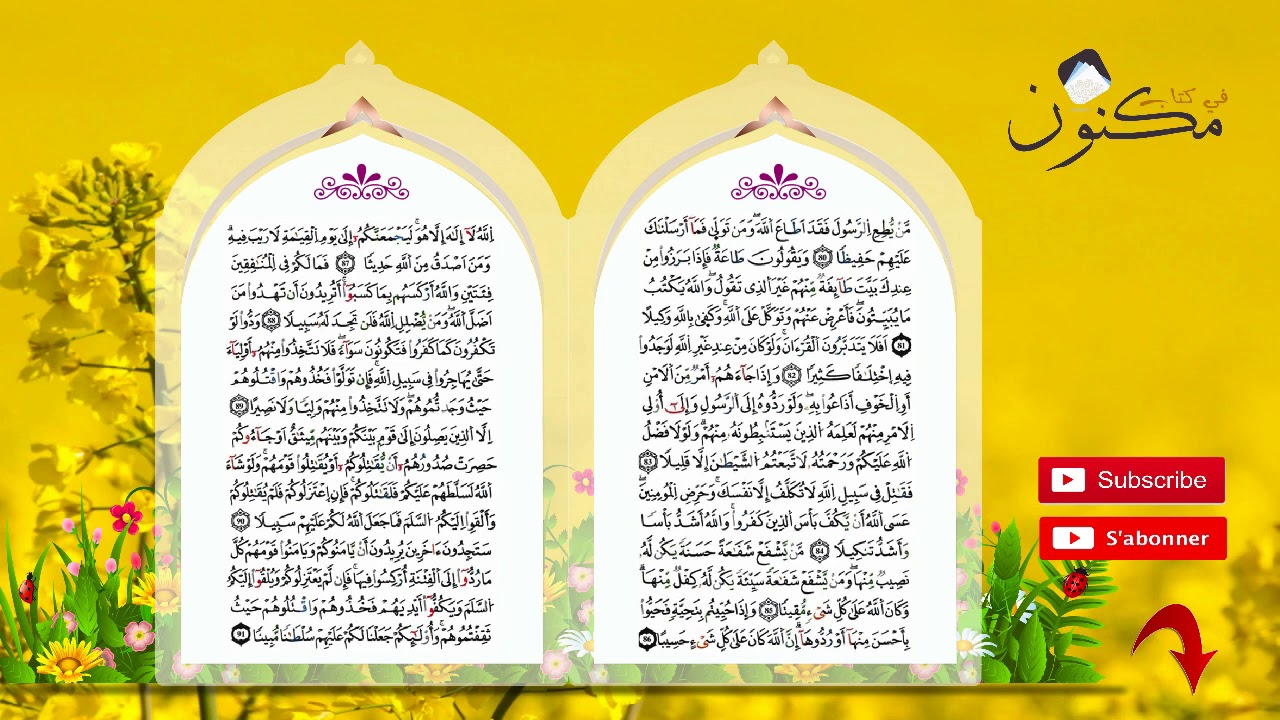 في كتاب
مكنون
مَّنْ يُّطِعِ اِ۬لرَّسُولَ فَقَدَ اَطَاعَ اَ۬للَّهَۖ وَمَن تَوَلّ۪يٰ فَمَآ أَرْسَلْنَٰكَ
عَلَيْهِمْ حَفِيظاٗۖ 80 وَيَقُولُونَ طَاعَةٞ فَإِذَا بَرَزُواْ مِنْ
عِندِكَ بَيَّتَ طَآئِفَةٞ مِّنْهُمْ غَيْرَ اَ۬لذِے تَقُولُۖ وَاللَّهُ يَكْتُبُ
مَا يُبَيِّتُونَۖ فَأَعْرِضْ عَنْهُمْ وَتَوَكَّلْ عَلَي اَ۬للَّهِۖ وَكَف۪يٰ بِاللَّهِ وَكِيلاًۖ
81 اَفَلَا يَتَدَبَّرُونَ اَ۬لْقُرْءَانَۖ وَلَوْ كَانَ مِنْ عِندِ غَيْرِ اِ۬للَّهِ لَوَجَدُواْ
فِيهِ اِ۪خْتِلَٰفاٗ كَثِيراٗۖ 82 وَإِذَا جَآءَهُمُۥٓ أَمْرٞ مِّنَ اَ۬لَامْنِ
أَوِ اِ۬لْخَوْفِ أَذَاعُواْ بِهِۦۖ وَلَوْ رَدُّوهُ إِلَي اَ۬لرَّسُولِ وَإِلَيٰٓ أُوْلِے
اِ۬لَامْرِ مِنْهُمْ لَعَلِمَهُ اُ۬لذِينَ يَسْتَنۢبِطُونَهُۥ مِنْهُمْۖ وَلَوْلَا فَضْلُ
اُ۬للَّهِ عَلَيْكُمْ وَرَحْمَتُهُۥ لَاتَّبَعْتُمُ اُ۬لشَّيْطَٰنَ إِلَّا قَلِيلاٗۖ 83
فَقَٰتِلْ فِے سَبِيلِ اِ۬للَّهِ لَا تُكَلَّفُ إِلَّا نَفْسَكَۖ وَحَرِّضِ اِ۬لْمُومِنِينَۖ
عَسَي اَ۬للَّهُ أَنْ يَّكُفَّ بَأْسَ اَ۬لذِينَ كَفَرُواْۖ وَاللَّهُ أَشَدُّ بَأْساٗ
وَأَشَدُّ تَنكِيلاٗۖ 84 مَّنْ يَّشْفَعْ شَفَٰعَةً حَسَنَةٗ يَكُن لَّهُۥ
نَصِيبٞ مِّنْهَاۖ وَمَنْ يَّشْفَعْ شَفَٰعَةٗ سَيِّئَةٗ يَكُن لَّهُۥ كِفْلٞ مِّنْهَاۖ
وَكَانَ اَ۬للَّهُ عَلَيٰ كُلِّ شَےْءٖ مُّقِيتاٗۖ 85 وَإِذَا حُيِّيتُم بِتَحِيَّةٖ فَحَيُّواْ
بِأَحْسَنَ مِنْهَآ أَوْ رُدُّوهَآۖ إِنَّ اَ۬للَّهَ كَانَ عَلَيٰ كُلِّ شَےْءٍ حَسِيباًۖ 86
اِ۬للَّهُ لَآ إِلَٰهَ إِلَّا هُوَۖ لَيَجْمَعَنَّكُمُۥٓ إِلَيٰ يَوْمِ اِ۬لْقِيَٰمَةِ لَا رَيْبَ فِيهِۖ
وَمَنَ اَصْدَقُ مِنَ اَ۬للَّهِ حَدِيثاٗۖ 87 فَمَا لَكُمْ فِے اِ۬لْمُنَٰفِقِينَ
فِئَتَيْنِ وَاللَّهُ أَرْكَسَهُم بِمَا كَسَبُوٓاْۖ أَتُرِيدُونَ أَن تَهْدُواْ مَنَ
اَضَلَّ اَ۬للَّهُۖ وَمَنْ يُّضْلِلِ اِ۬للَّهُ فَلَن تَجِدَ لَهُۥ سَبِيلاٗۖ 88 وَدُّواْ لَوْ
تَكْفُرُونَ كَمَا كَفَرُواْ فَتَكُونُونَ سَوَآءٗۖ فَلَا تَتَّخِذُواْ مِنْهُمُۥٓ أَوْلِيَآءَ
حَتَّيٰ يُهَاجِرُواْ فِے سَبِيلِ اِ۬للَّهِۖ فَإِن تَوَلَّوْاْ فَخُذُوهُمْ وَاقْتُلُوهُمْ
حَيْثُ وَجَدتُّمُوهُمْۖ وَلَا تَتَّخِذُواْ مِنْهُمْ وَلِيّاٗ وَلَا نَصِيراً 89
اِلَّا اَ۬لذِينَ يَصِلُونَ إِلَيٰ قَوْمِۢ بَيْنَكُمْ وَبَيْنَهُم مِّيثَٰقٌ اَوْ جَآءُوكُمْ
حَصِرَتْ صُدُورُهُمُۥٓ أَنْ يُّقَٰتِلُوكُمُۥٓ أَوْ يُقَٰتِلُواْ قَوْمَهُمْۖ وَلَوْ شَآءَ
اَ۬للَّهُ لَسَلَّطَهُمْ عَلَيْكُمْ فَلَقَٰتَلُوكُمْۖ فَإِنِ اِ۪عْتَزَلُوكُمْ فَلَمْ يُقَٰتِلُوكُمْ
وَأَلْقَوِاْ اِلَيْكُمُ اُ۬لسَّلَمَ فَمَا جَعَلَ اَ۬للَّهُ لَكُمْ عَلَيْهِمْ سَبِيلاٗۖ 90
سَتَجِدُونَ ءَاخَرِينَ يُرِيدُونَ أَنْ يَّامَنُوكُمْ وَيَامَنُواْ قَوْمَهُمْ كُلَّ
مَا رُدُّوٓاْ إِلَي اَ۬لْفِتْنَةِ أُرْكِسُواْ فِيهَاۖ فَإِن لَّمْ يَعْتَزِلُوكُمْ وَيُلْقُوٓاْ إِلَيْكُمُ
اُ۬لسَّلَمَ وَيَكُفُّوٓاْ أَيْدِيَهُمْ فَخُذُوهُمْ وَاقْتُلُوهُمْ حَيْثُ
ثَقِفْتُمُوهُمْۖ وَأُوْلَٰٓئِكُمْ جَعَلْنَا لَكُمْ عَلَيْهِمْ سُلْطَٰناٗ مُّبِيناٗۖ 91
Subscribe
S'abonner